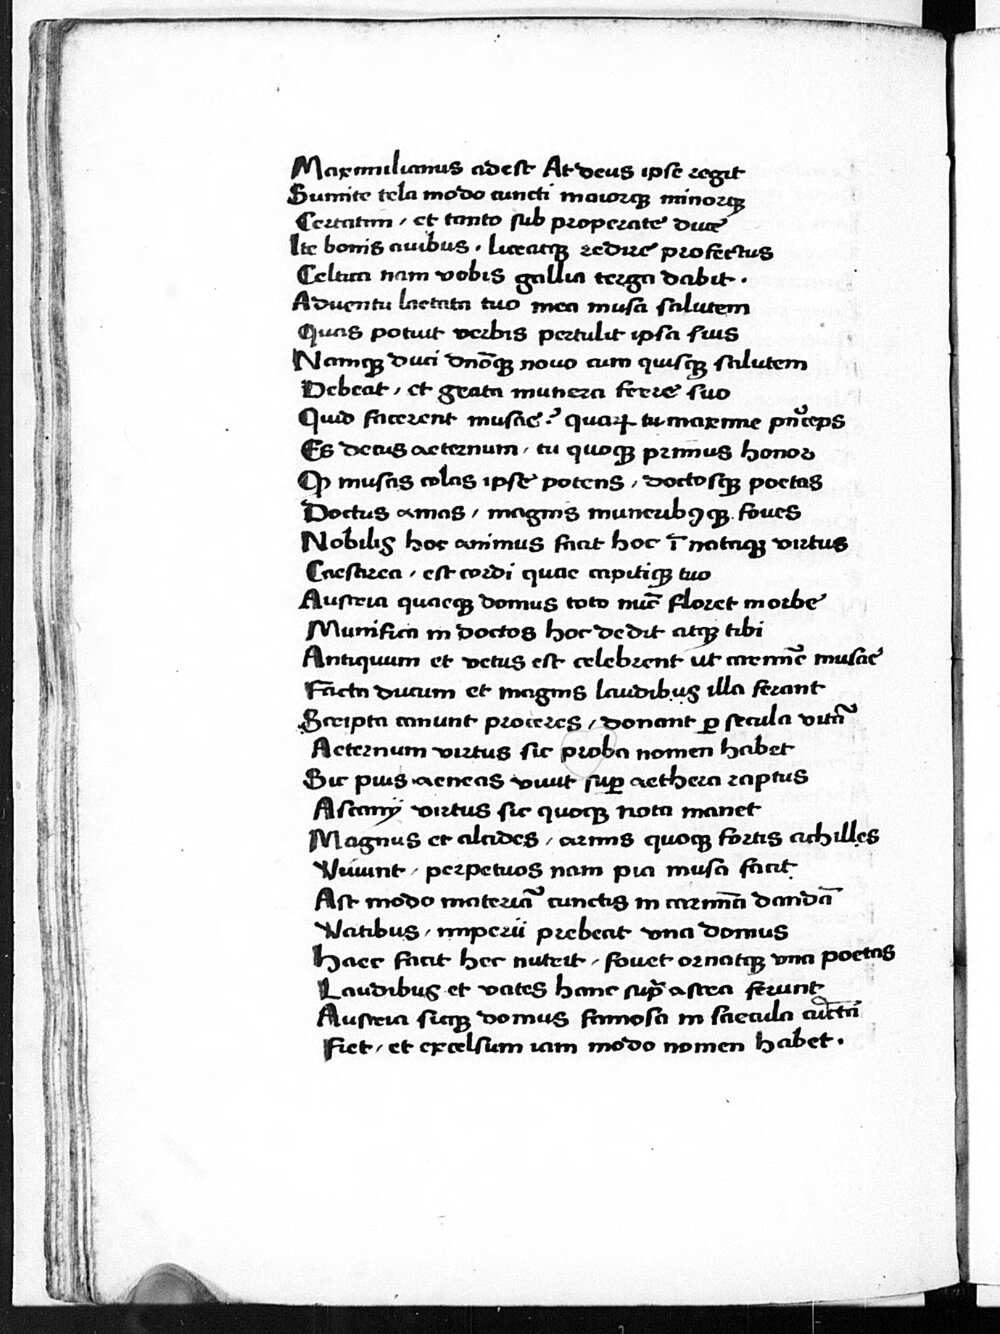 Maximilianus adest At deus ipse regit
Sumite tela modo cuncti maiorqꝫ minorqꝫ
Certatim, et tanto sub properate duce
Ite bonis avibus. luceatqꝫ redire profectus
Celtica nam vobis gallia terga dabit.
Adventu laetata tuo mea musa salutem
Quas potuit verbis pertulit ipsa suis
Namqꝫ duci dnōqꝫ novo cum quisqꝫ salutem
Debeat, et grata munera ferre suo
Quid facerent musae? quaꝝ tu maxime pn̄ceps
Es decus aeternum, tu quoqꝫ primus honor
Qꝫ musas colas ipse potens, doctosqꝫ poetas
Doctus amas, magnis munerib9qꝫ foves
Nobilis hoc animus facit hoc īnataqꝫ virtus
Caesarea, est cordi quae capitiqꝫ tuo
Austria quaeqꝫ domus toto nūc floret in orbe
Munifica in doctos hoc dedit atqꝫ tibi
Antiquum et vetus est celebrent ut carmīe musae
Facta ducum et magnis laudibus illa ferant
Scripta canunt proceres, donant ꝑ secula vitā
Aeternum virtus sic proba nomen habet
Sic pius aeneas vivit suꝑ aethera raptus
Ascanij virtus sic quoqꝫ nota manet
Magnus et alcides, armis quoqꝫ fortis achilles
Vivunt, perpetuos nam pia musa facit
Ast modo materiā cunctis in carmīa dandā
Vatibus, imperii prebeat una domus
Haec facit hec nutrit, fovet ornatqꝫ una poetas
Laudibus et vates hanc supra astra ferunt
Austria sicqꝫ domus famosa in saecula cūcta
Fiet, et excelsum iam modo nomen habet.